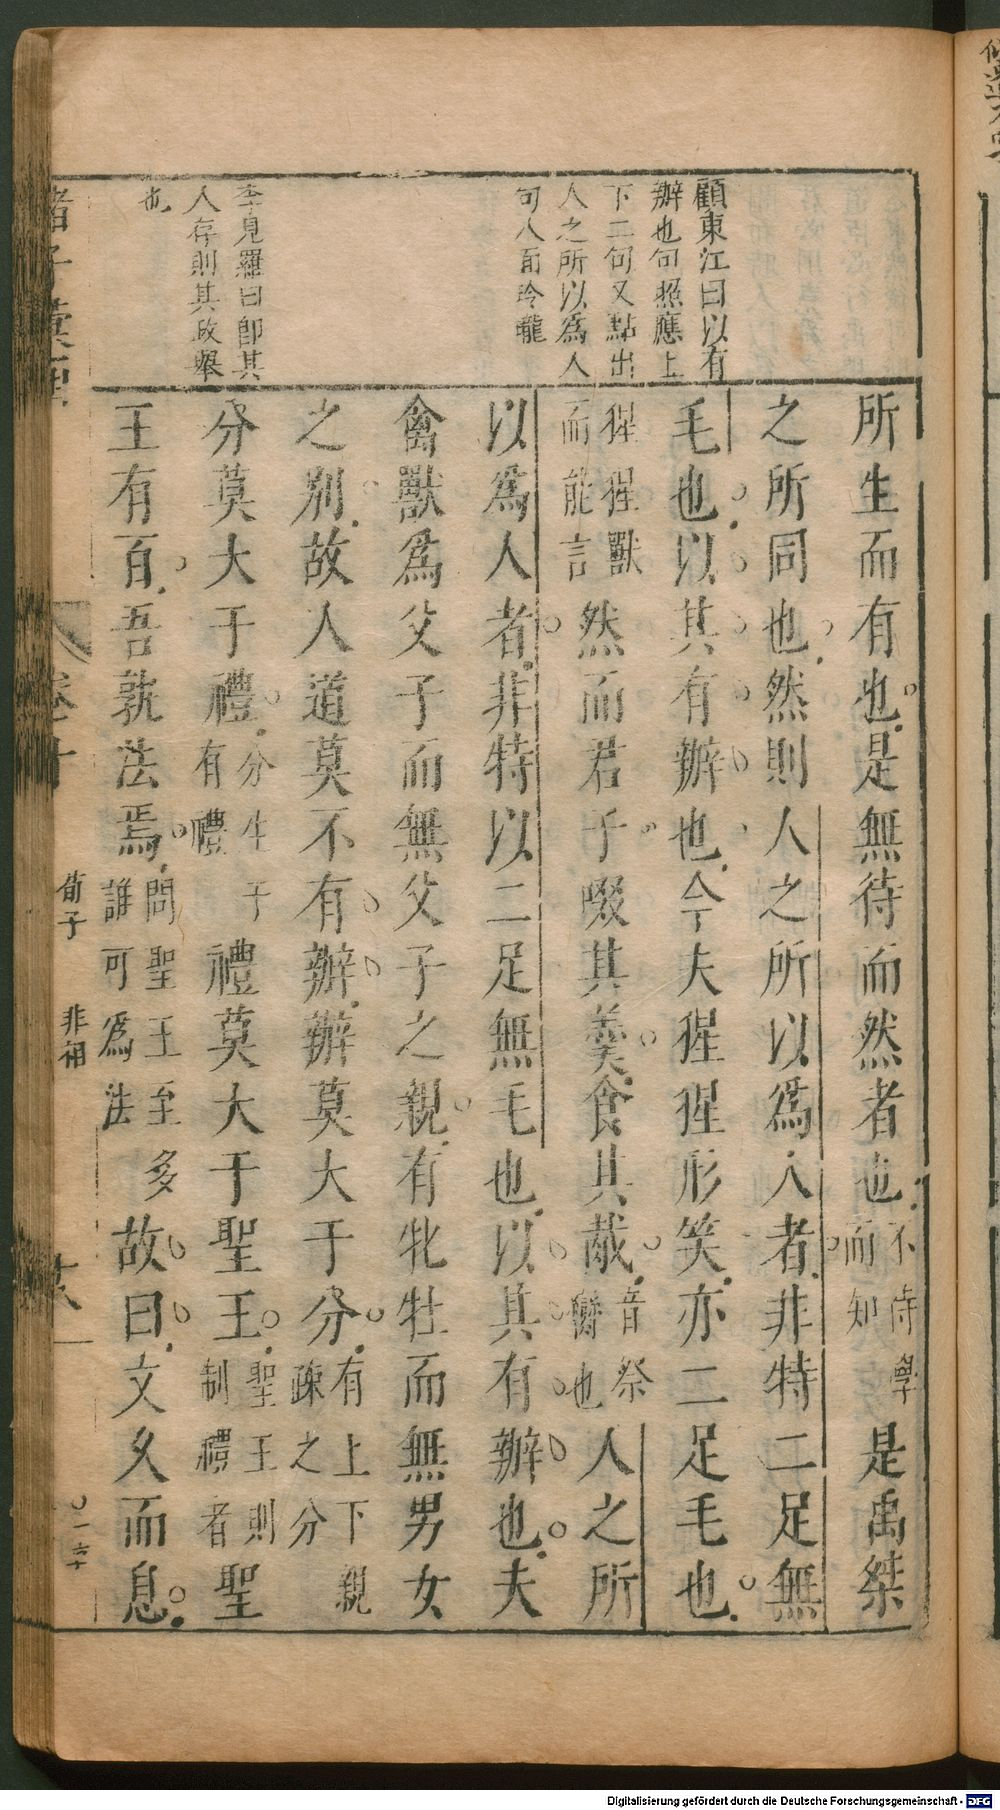 顧東江曰以有
辦也句照應上
下二句又點出
人之所以為人
句人有玲瓏
李見羅曰卽其
人存則其政舉
也
所生而有也是無待而然者也不待學而知是禹桀
之所同也然則人之所以為人者非特二足無
毛也以其有辦也今夫猩猩形笑亦二足毛也
猩猩獸而能言然而君子啜其羹食其胾音祭臠也人之所
以為人者非特以二足無毛也以其有辦也夫
禽獸為父子而無父子之親有牝牡而無男女
之別故人道莫不有辦辦莫大于分有上下親疎之分
分莫大于禮分生于有禮禮莫大于聖王聖王則制禮者聖
王有百吾孰法焉問聖王至多誰可為法故曰文久而息
諸子彙
卷十
荀子
非相
Digitalisierung gefördert durch die Deutsche Forschungsgemeinschaft - DFG